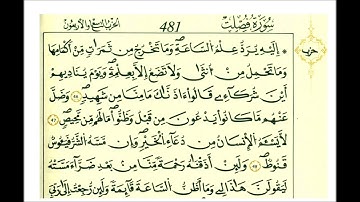 سُورَةُ فُصِّلَتْ 481 الحزب التاسع والأربعون
حزب
إِلَيْهِ يُرَدُّ عِلْمُ السَّاعَةِ وَمَا تَخْرُجُ مِن ثَمَرَاتٍ مِّنْ أَكْمَامِهَا
وَمَا تَحْمِلُ مِنْ أُنثَىٰ وَلَا تَضَعُ إِلَّا بِعِلْمِهِ وَيَوْمَ يُنَادِيهِمْ
أَيْنَ شُرَكَاءِى قَالُوا ءَاذَنَّاكَ مَا مِنَّا مِن شَهِيدٍ وَضَلَّ
عَنْهُم مَّا كَانُوا يَدْعُونَ مِن قَبْلُ وَظَنُّوا مَا لَهُم مِّن مَّحِيصٍ
لَّا يَسْـَٔمُ الْإِنسَانُ مِن دُعَاءِ الْخَيْرِ وَإِن مَّسَّهُ الشَّرُّ فَيَـُٔوسٌ
قَنُوطٌ وَلَئِنْ أَذَقْنَاهُ رَحْمَةً مِّنَّا مِن بَعْدِ ضَرَّاءَ مَسَّتْهُ
لَيَقُولَنَّ هَٰذَا لِى وَمَا أَظُنُّ السَّاعَةَ قَائِمَةً وَلَئِن رُّجِعْتُ إِلَىٰ رَبِّى